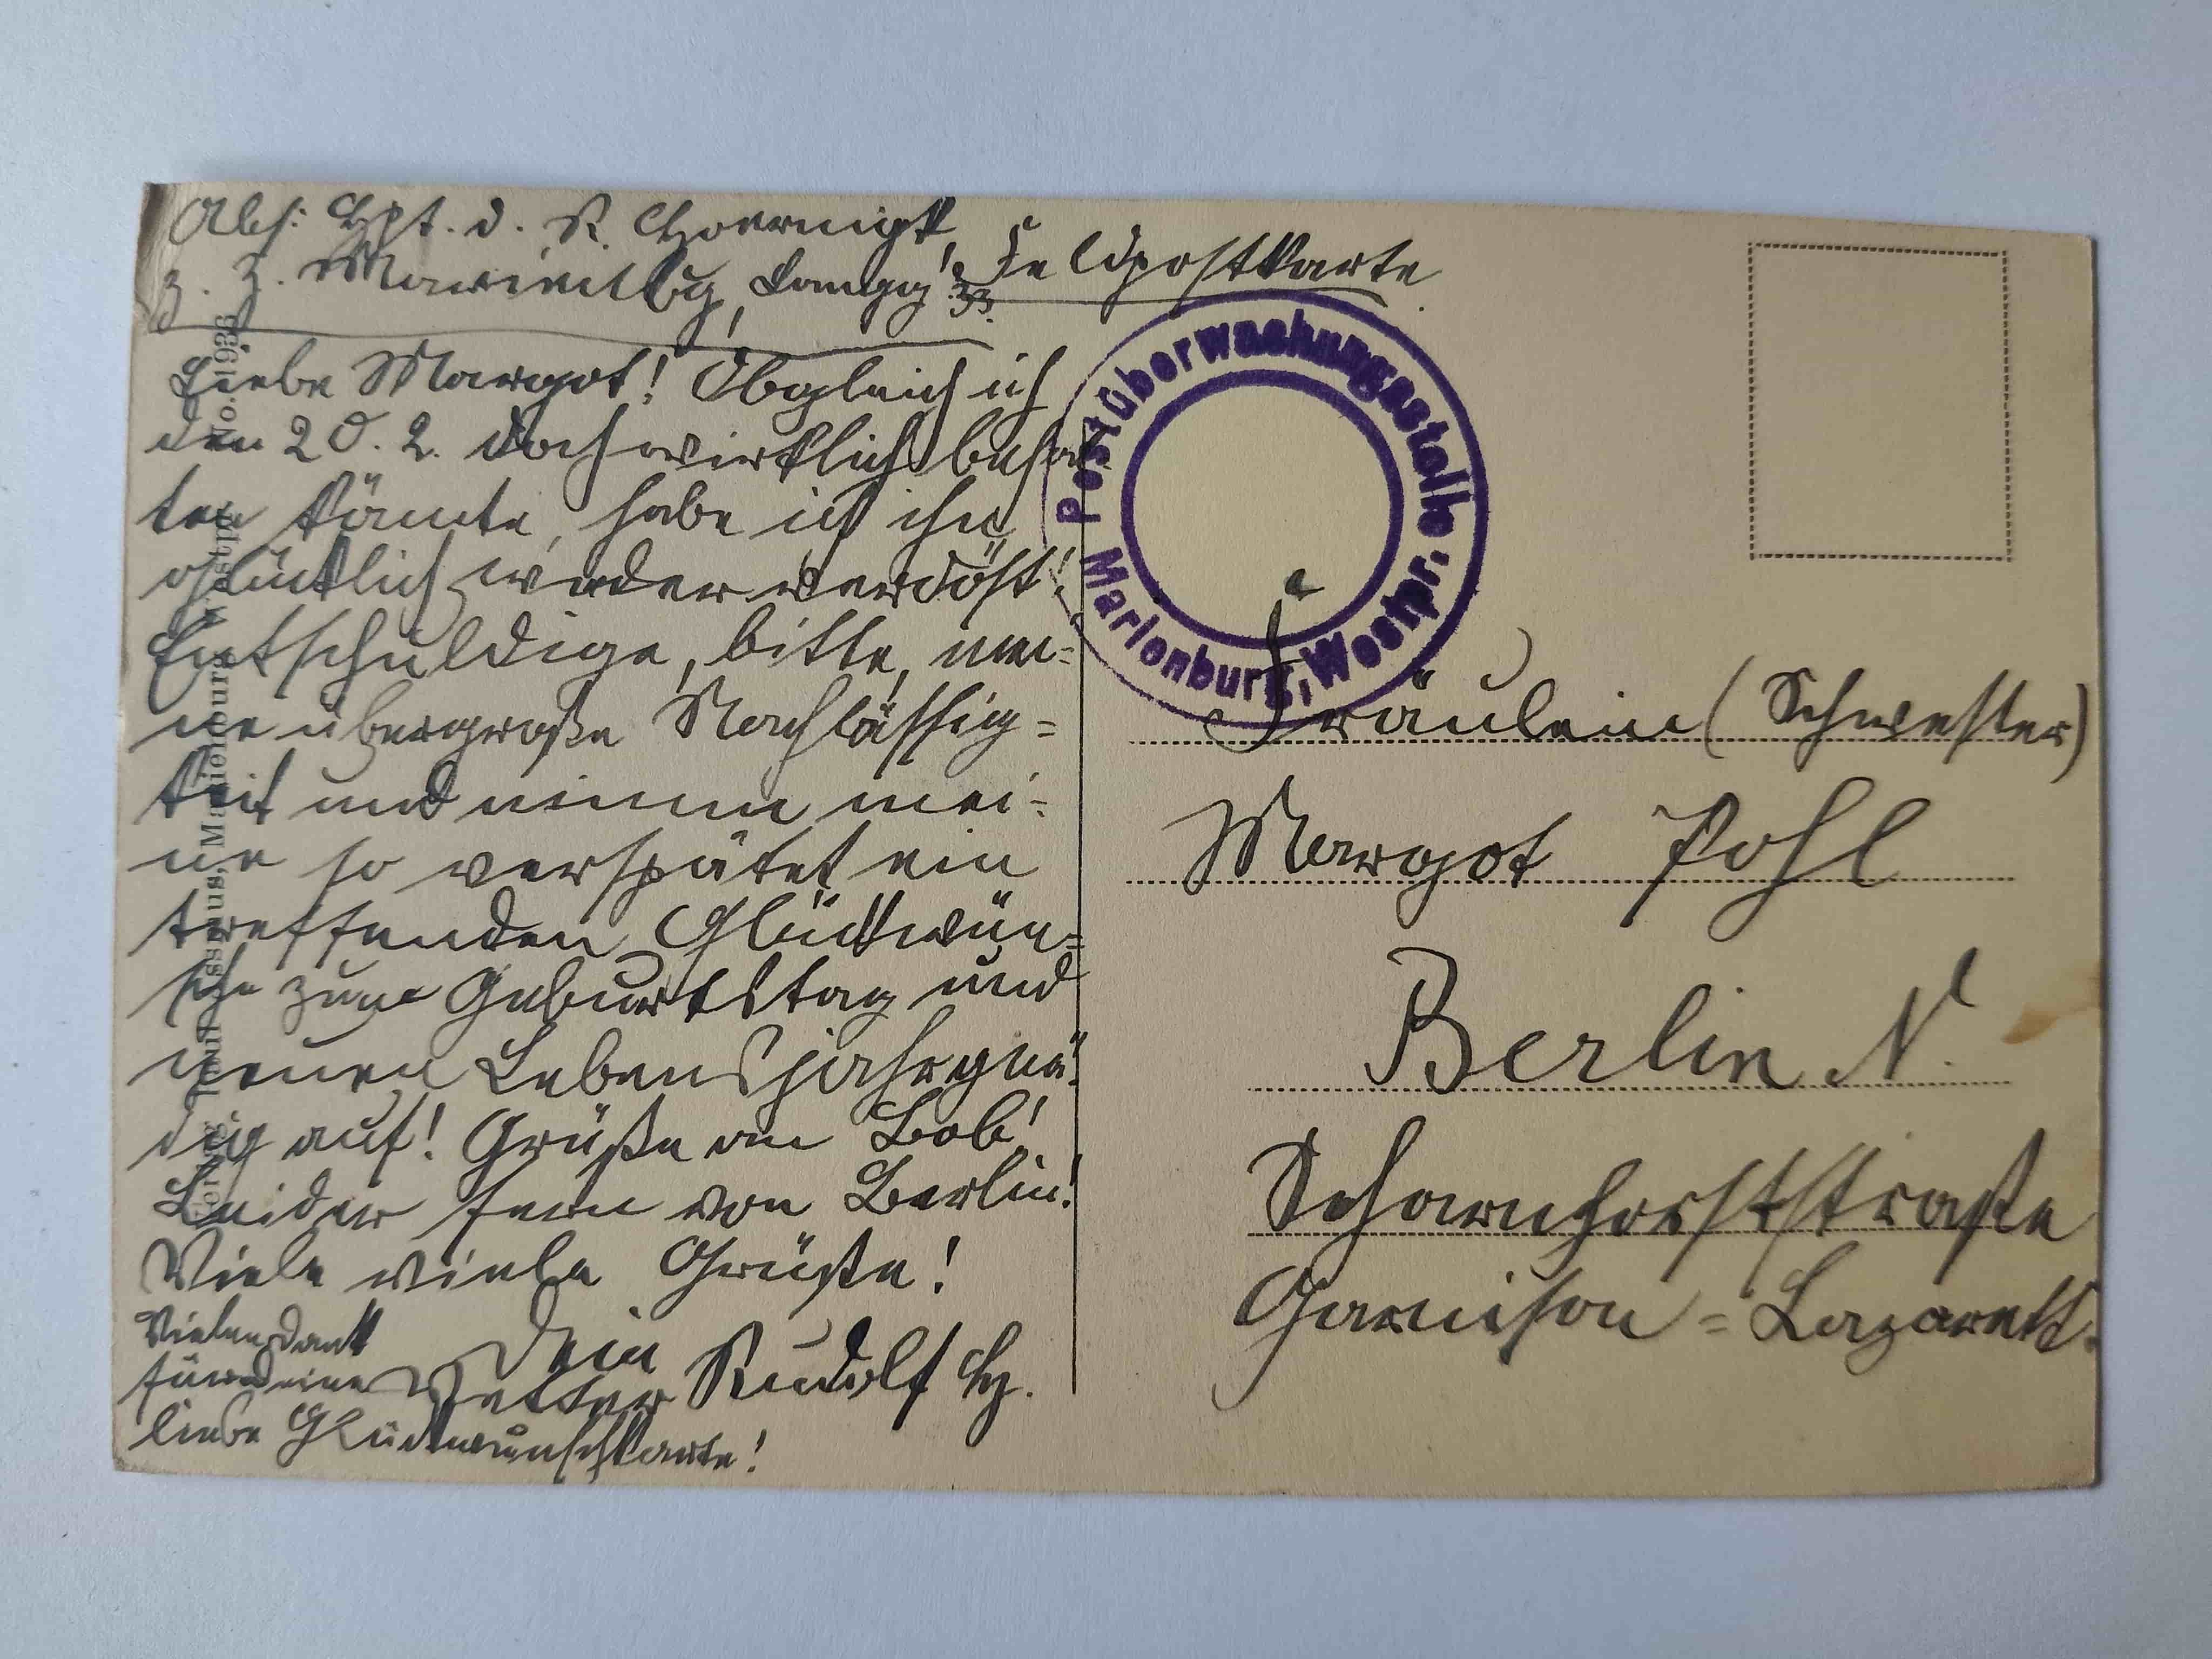 Abs: Hpt. d. R. Hoernigk,
z. Z. Marienbg, Langg. 33.
Feldpostkarte
Liebe Margot! Obgleich ich
den 20. 2. doch wirklich behal-
ten könnte, habe ich ihn
glücklich wieder verdöst!
Entschuldige, bitte, mei=
ne übergroße Nachlässig=
keit und nimm mei=
ne so verspätet ein
treffenden Glückwün=
sche zum Geburtstag und
neuen Lebensjahr gnä=
dig auf! Grüße an Bob!
Leider fern von Berlin!
Viele viele Grüße!
Dein
Vetter Rudolf H.
Vielen Dank
für deine
liebe Glückwunschkarte!
Postüberwachungsstelle
Marienburg, Westpr.
Fräulein (Schwester)
Margot Pohl
Berlin N.
Scharnhorststraße
Garnison=Lazarett.
No. 1933